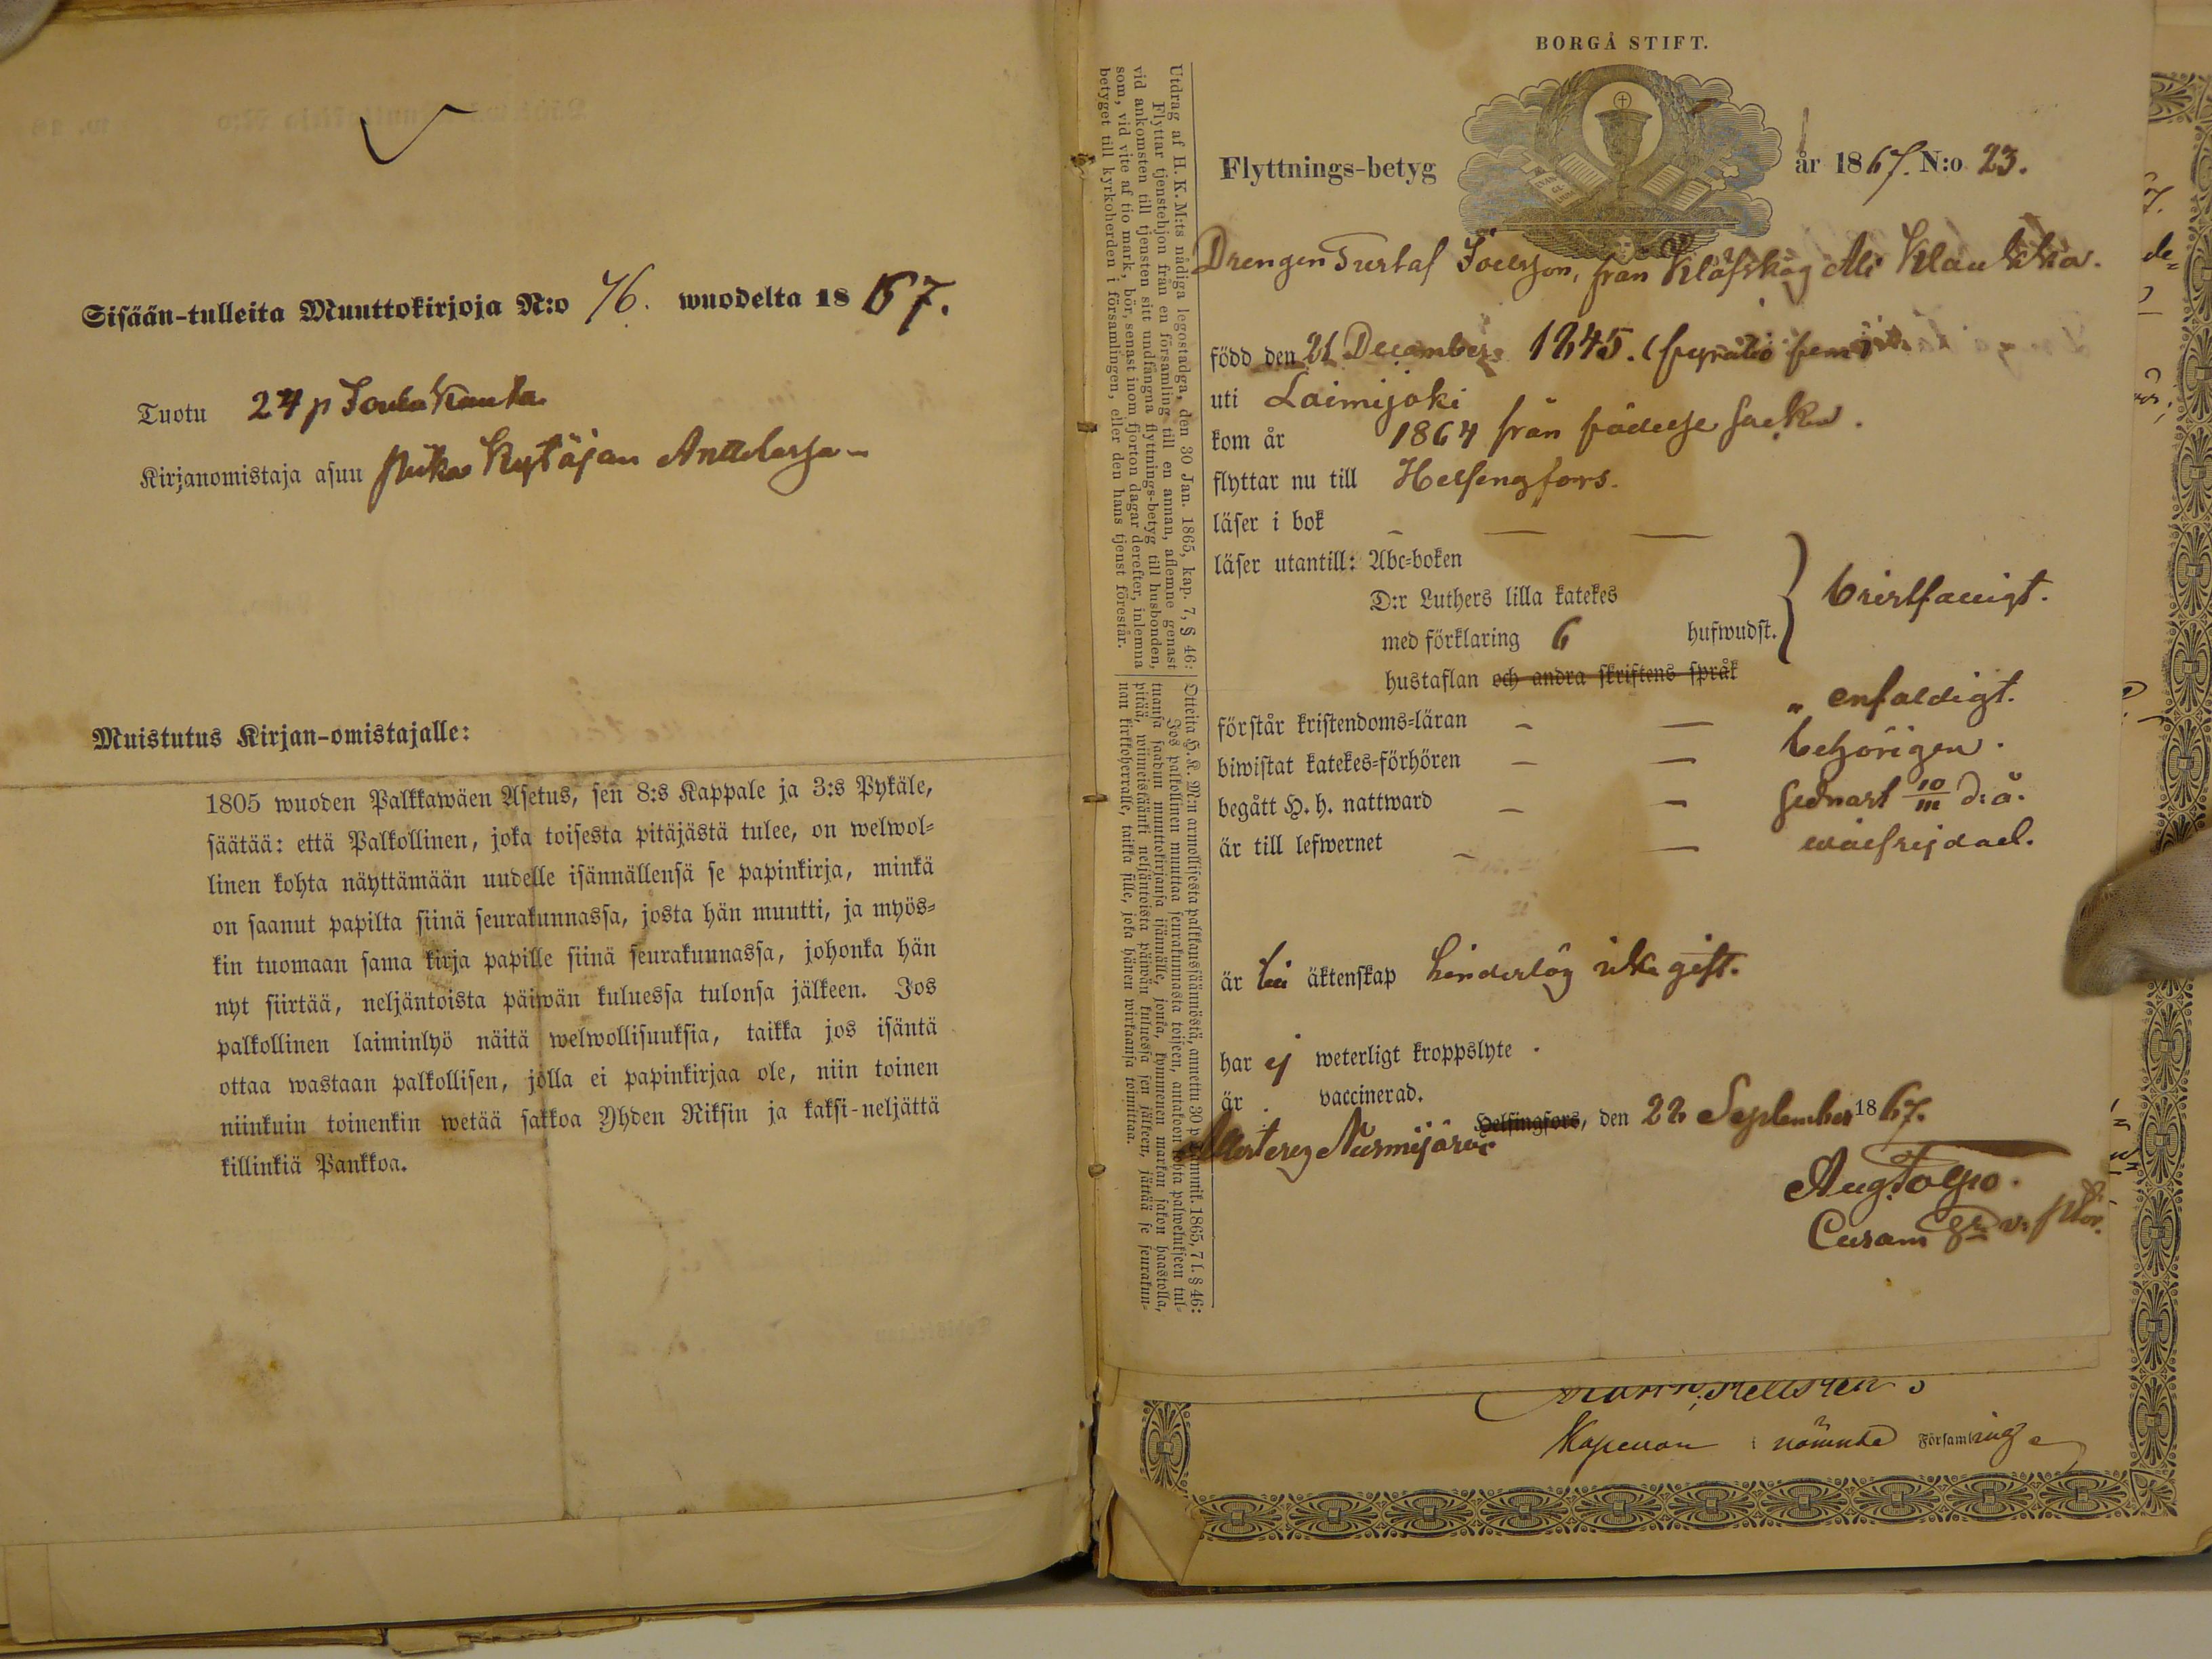 Sisään-tulleita Muuttokirjoja N:o 76. wuodelta 1867.
Tuotu 24 p Joulu Kuuta
Kirjanomistaja asuu Kytäjan Anttilassa
Muistutus Kirjan-omistajalle:
1805 wuoden Palkkawäen Asetus, sen 8:s Kappale ja 3:s Pykäle,
säätää: että Palkollinen, joka toisesta pitäjästä tulee, on welwol-
linen kohta näyttämään uudelle isännällensä se papinkirja, minkä
on saanut papilta siinä seurakunnassa, josta hän muutti, ja myös-
kin tuomaan sama kirja papille siinä seurakunnassa, johonka hän
nyt siirtää, neljäntoista päiwän kuluessa tulonsa jälkeen. Jos
palkollinen laiminlyö näitä welwollisuuksia, taikka jos isäntä
ottaa wastaan palkollisen, jolla ei papinkirjaa ole, niin toinen
niinkuin toinenkin wetää sakkoa Yhden Riksin ja kaksi-neljättä
killinkiä Pankkoa.
Utdrag af H. K. M:ts nådiga legostadga, den 30 Jan. 1865, kap. 7, § 46:
Flyttar tjenstehjon från en församling till en annan, aflemne genast
vid ankomsten till tjensten sitt undfångna flyttnings-betyg till husbonden,
som, vid vite af tio mark, bör, senast inom fjorton dagar derefter, inlemna
betyget till kyrkoherden i församlingen, eller den hans tjenst förestår.
Otteita H. K. M:n armollisesta palkkaussäännöstä, annettu 30 p. tammik. 1865, 7 l. § 46:
Jos palkollinen muuttaa seurakunnasta toiseen, antakoon kohta palwelukseen tul-
tuansa saadun muuttokirjansa isännälle, jonka, kymmenen markan sakon haastolla,
pitää, wiimeistäänki neljäntoista päiwän kuluessa sen jälkeen, jättää se seurakun-
nan kirkkoherralle, taikka sille, joka hänen wirkaansa toimittaa.
BORGÅ STIFT.
Flyttnings-betyg år 1867. N:o 23.
Drengen Gustaf Joelsson, från Klåfskog Ali Klaukka.
född den 21 December 1845. (fyratio fem)
uti Loimijoki
kom år 1864 från födelse socken.
flyttar nu till Helsingfors.
läser i bok
läser utantill: Abc-boken
D:r Luthers lilla katekes
med förklaring 6 hufwudst. bristfälligt.
hustaflan och andra skriftens språk
förstår kristendoms-läran " enfaldigt.
biwistat katekes-förhören behörigen.
begått H. h. nattward sednast 10/III d: å.
är till lefwernet wälfrejdad.
är till äktenskap hinderlös icke gift.
har ej weterligt kroppslyte.
är vaccinerad.
Nurmijärvi Helsingfors, den 22 September 1867.
Aug. Tolpo.
Kapellan i nämnde Församling